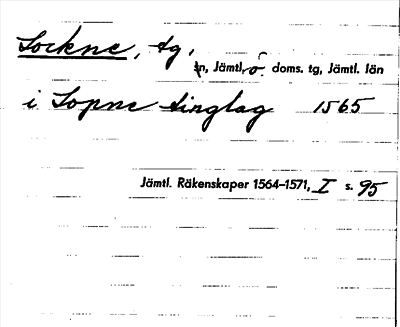 Sockne, tg,
sn, Jämtl, ö. doms. tg, Jämtl. län
i Sopne tinglag 1565
Jämtl. Räkenskaper 1564–1571, I s. 95